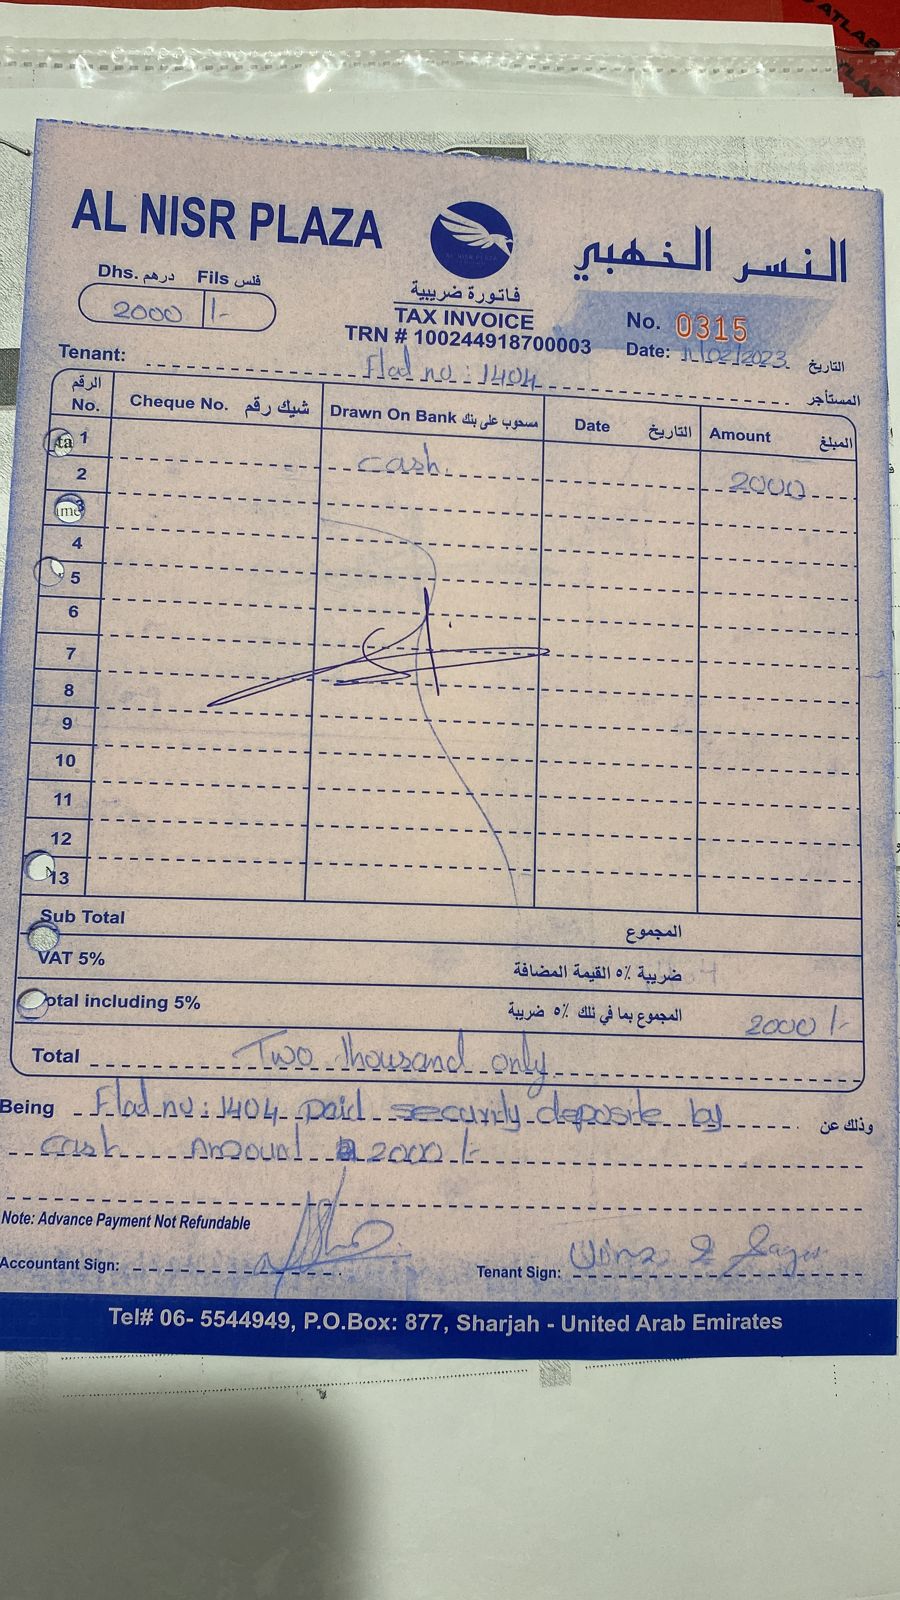 ATLAB
ATLAB
AL NISR PLAZA
النسر الذهبي
AL NISR PLAZA
Dhs. درهم Fils فلس
2000 /-
فاتورة ضريبية
TAX INVOICE
TRN # 100244918700003
No. 0315
Date: 11/02/2023 التاريخ
Tenant: Flat no : 1404 المستأجر
الرقم No. Cheque No. شيك رقم Drawn On Bank مسحوب على بنك Date التاريخ Amount المبلغ
1
2 cash 2000
3
4
5
6
7
8
9
10
11
12
13
Sub Total المجموع
VAT 5% ضريبة ٥٪ القيمة المضافة
otal including 5% المجموع بما في ذلك ٥٪ ضريبة 2000 /-
Total Two thousand only
Being Flat no : 1404 paid security deposite by وذلك عن
cash Amount 2000 /-
Note: Advance Payment Not Refundable
Accountant Sign:
Tenant Sign:
Tel# 06- 5544949, P.O.Box: 877, Sharjah - United Arab Emirates